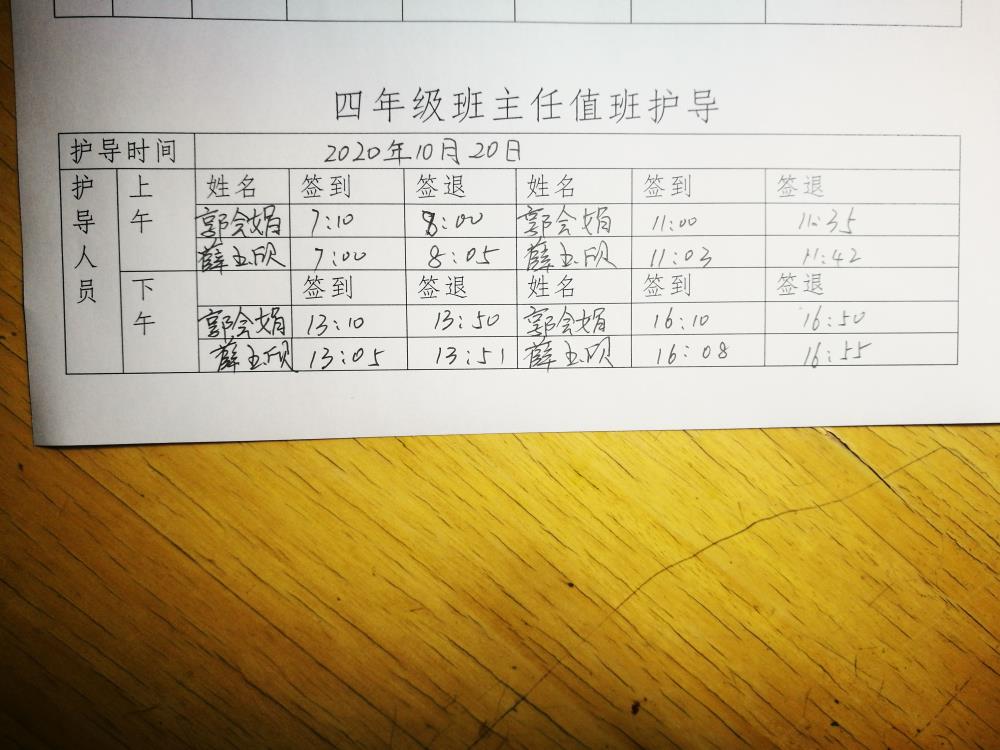 四年级班主任值班护导
护导时间 2020年10月20日
护导人员 上午 姓名 签到 签退 姓名 签到 签退
郭会娟 7:10 8:00 郭会娟 11:00 11:35
薛玉欣 7:00 8:05 薛玉欣 11:03 11:42
下午 签到 签退 姓名 签到 签退
郭会娟 13:10 13:50 郭会娟 16:10 16:50
薛玉欣 13:05 13:51 薛玉欣 16:08 16:55